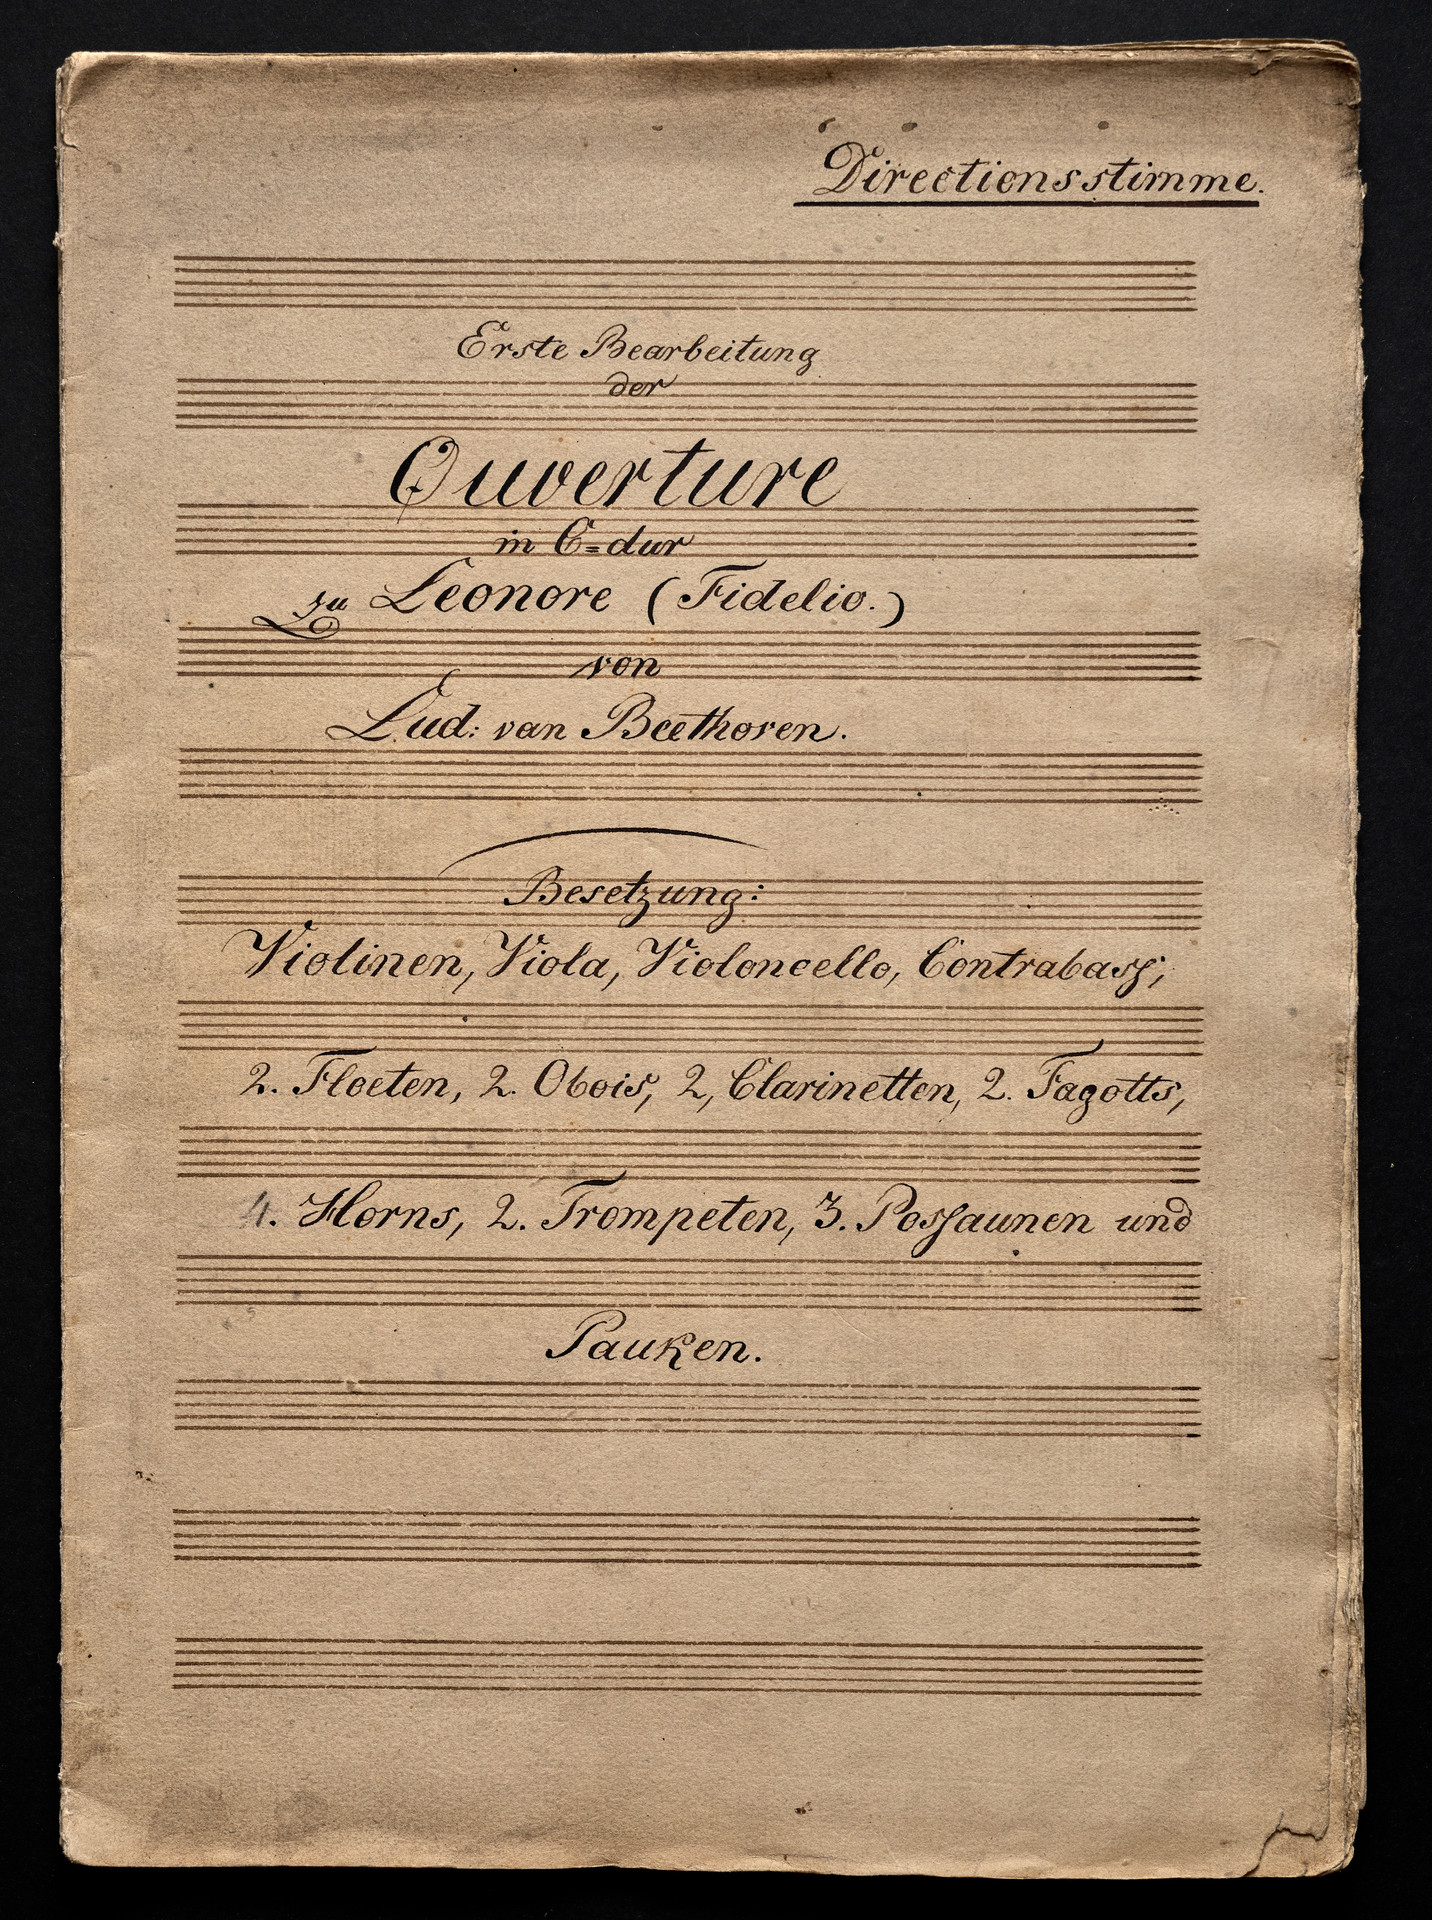 Directionsstimme.
Erste Bearbeitung
der
Ouverture
in C=dur
zu Leonore (Fidelio.)
von
Lud: van Beethoven.
Besetzung:
Violinen, Viola, Violoncello, Contrabass;
2. Floeten, 2. Obois, 2, Clarinetten, 2. Fagotts,
4. Horns, 2. Trompeten, 3. Possaunen und
Pauken.